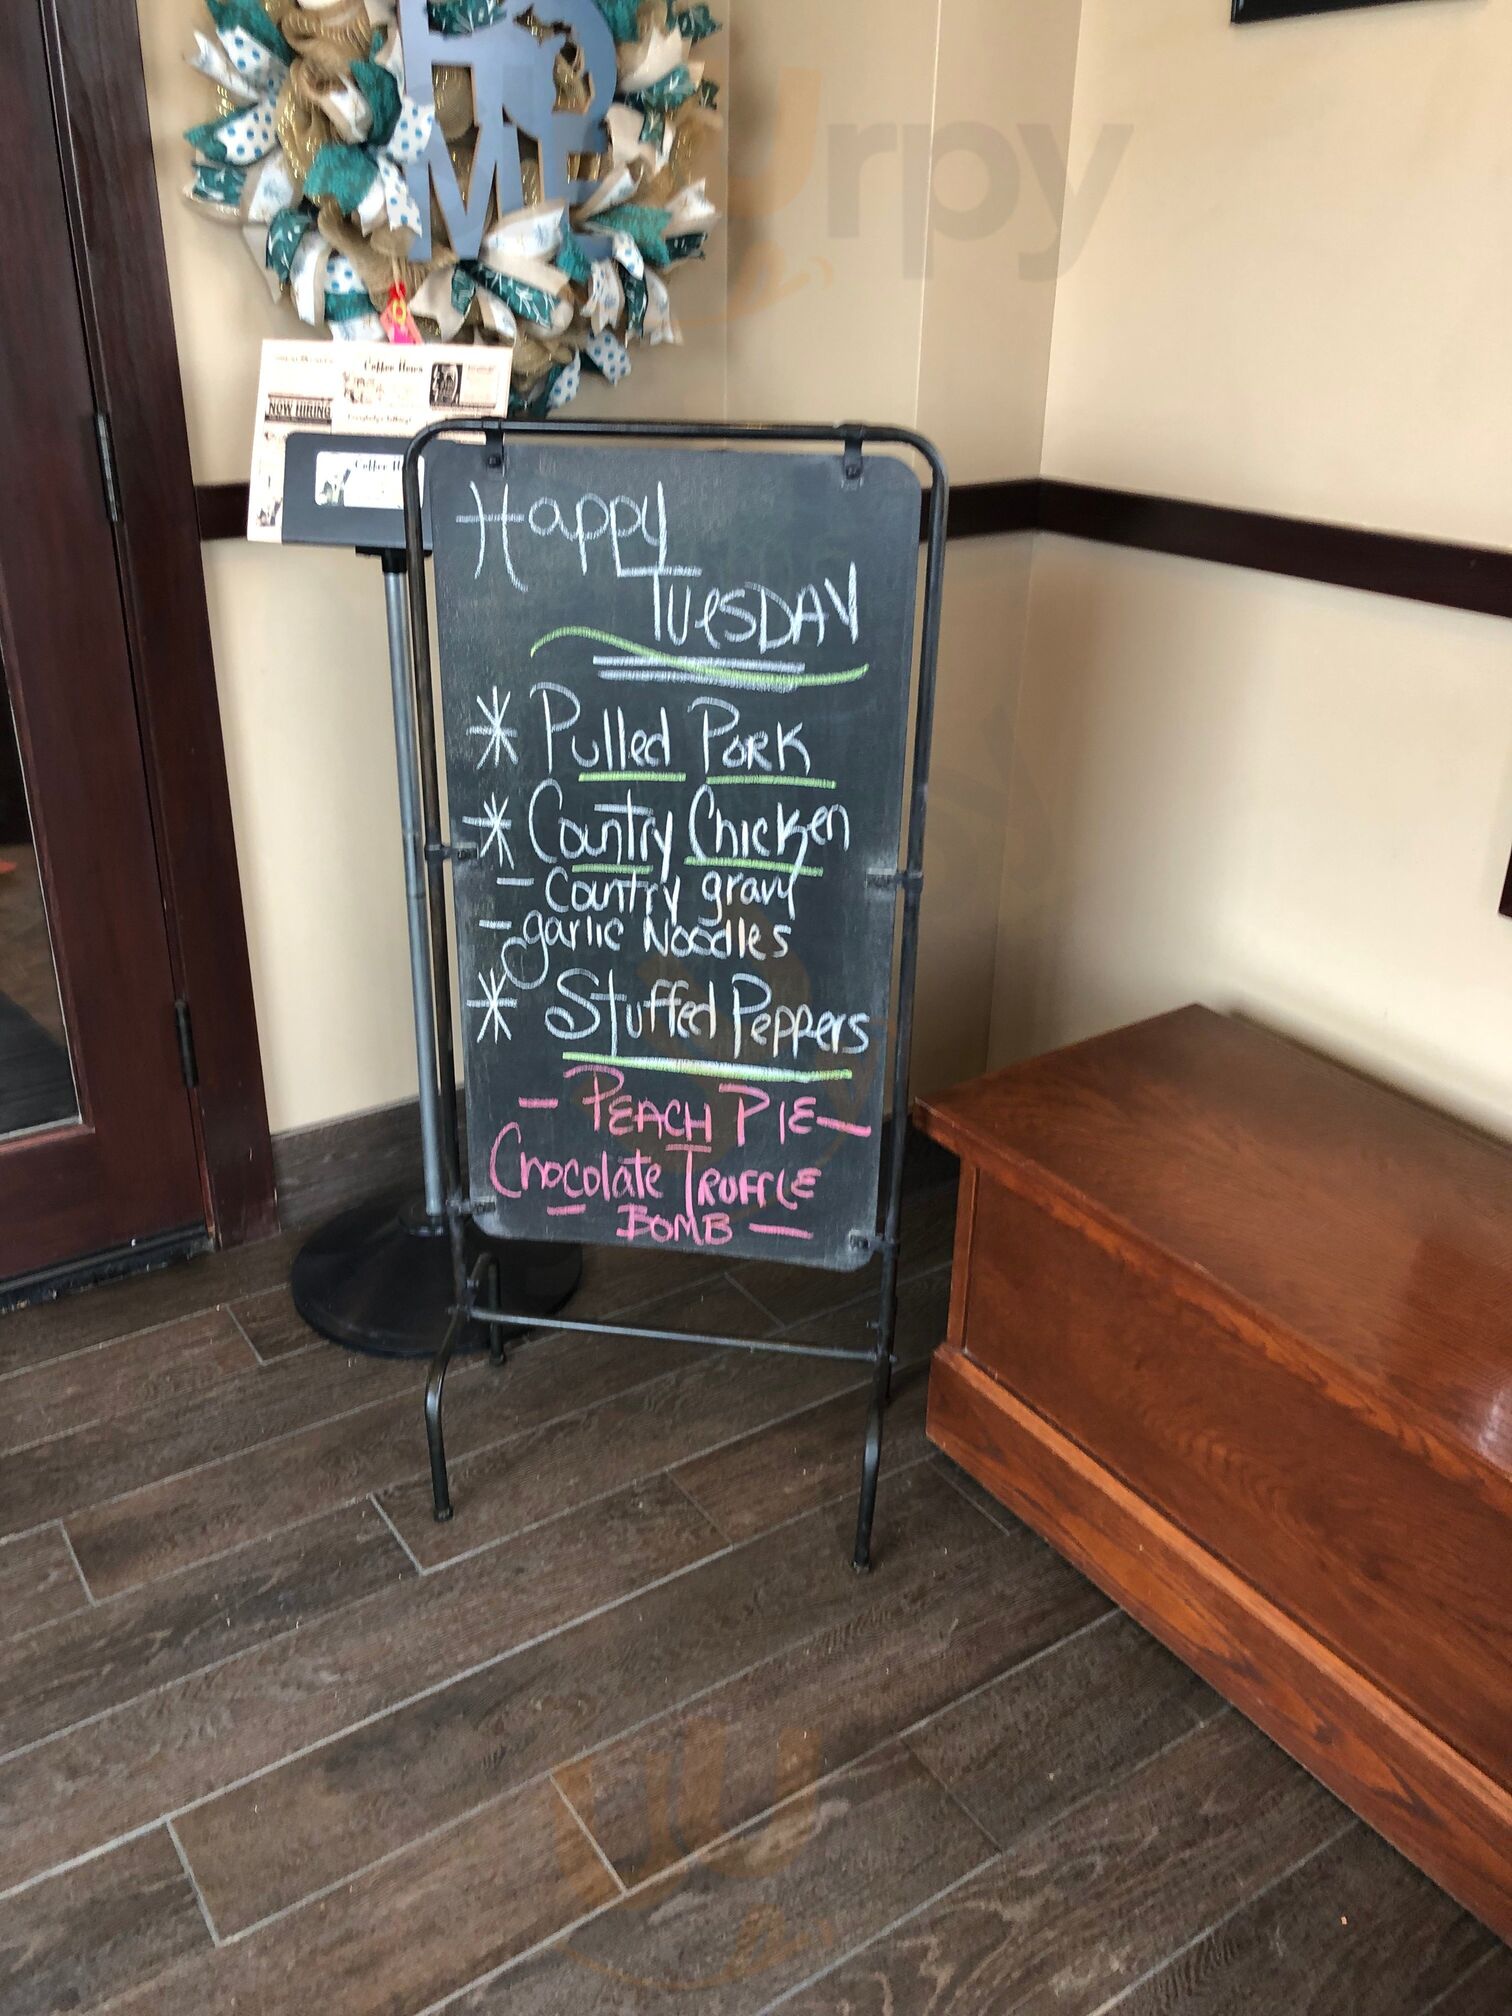 HOME
Coffee News
NOW HIRING
Happy
TUESDAY
* Pulled Pork
* Country Chicken
- Country gravy
- garlic Noodles
* Stuffed Peppers
- PEACH PIE -
Chocolate TRUFFLE
- BOMB -